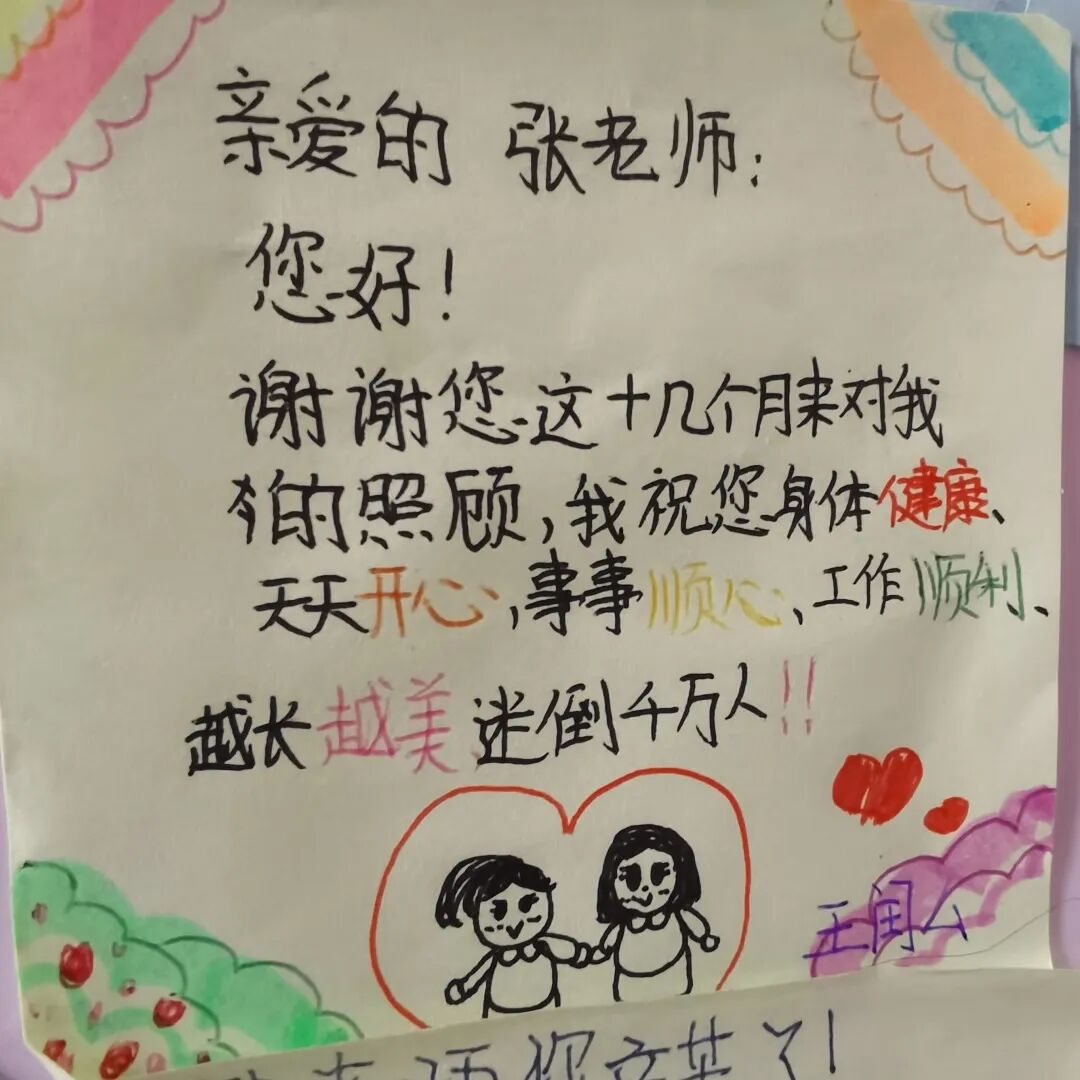 亲爱的 张老师：
您好！
谢谢您这十几个月来对我
的照顾，我祝您身体健康、
天天开心，事事顺心、工作顺利、
越长越美迷倒千万人!!
王闰